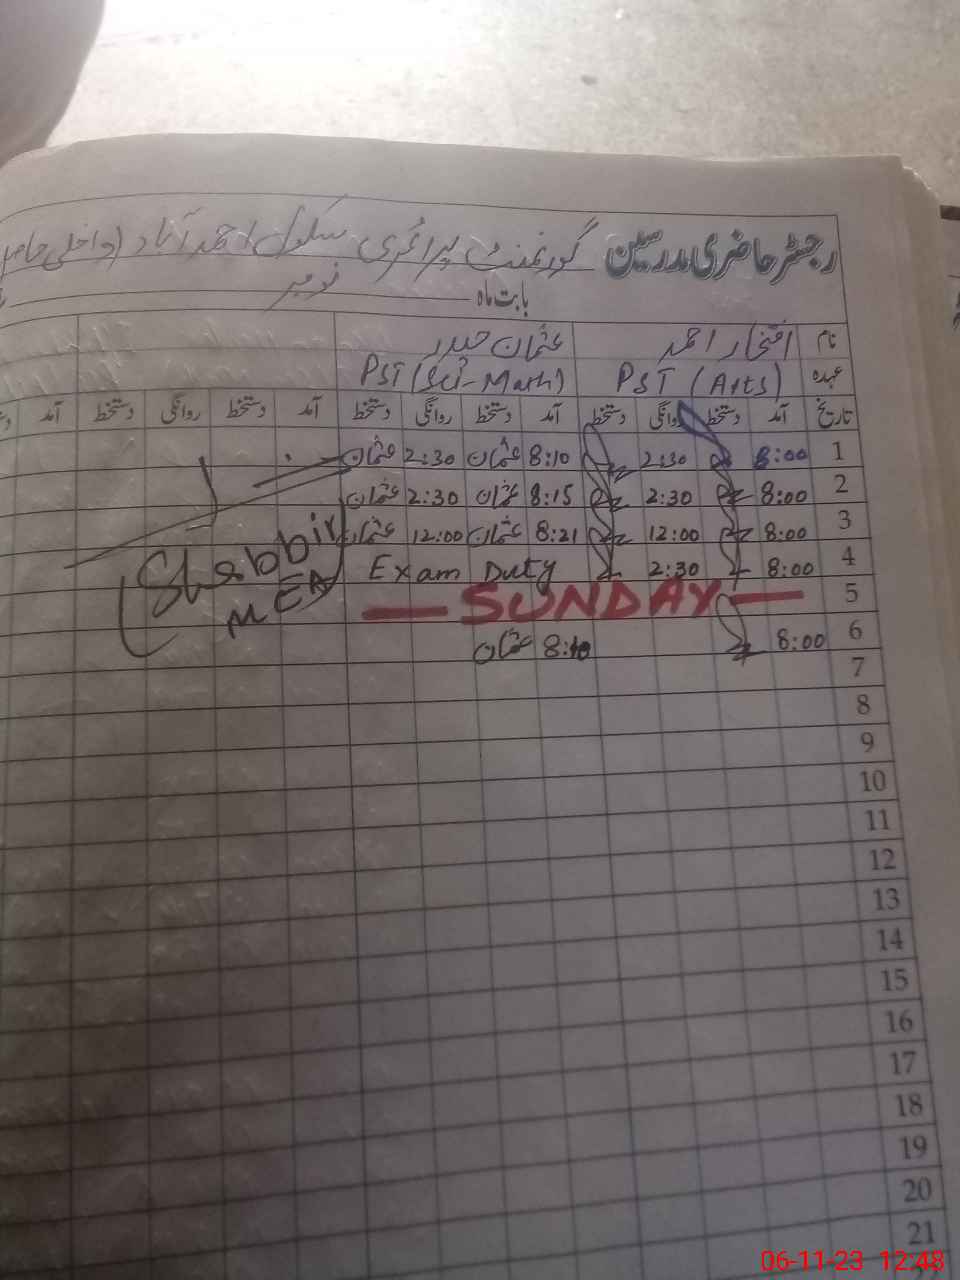 رجسٹر حاضری مدرسین گورنمنٹ پرائمری سکول احمد آباد (داخلی
بابت ماہ نومبر
نام افتخار احمد عثمان حیدر
عہدہ PST (Arts) PST (Sci-Math)
تاریخ آمد دستخط روانگی دستخط آمد دستخط روانگی دستخط آمد دستخط روانگی دستخط آمد
1 8:00 2:30 8:10 عثمان 2:30 عثمان
2 8:00 2:30 8:15 عثمان 2:30 عثمان
3 8:00 12:00 8:21 عثمان 12:00 عثمان
4 8:00 2:30 Exam Duty
5 — SUNDAY —
6 8:00 8:10 عثمان
(Shabbir)
MEA
7
8
9
10
11
12
13
14
15
16
17
18
19
20
21
06-11-23 12:48